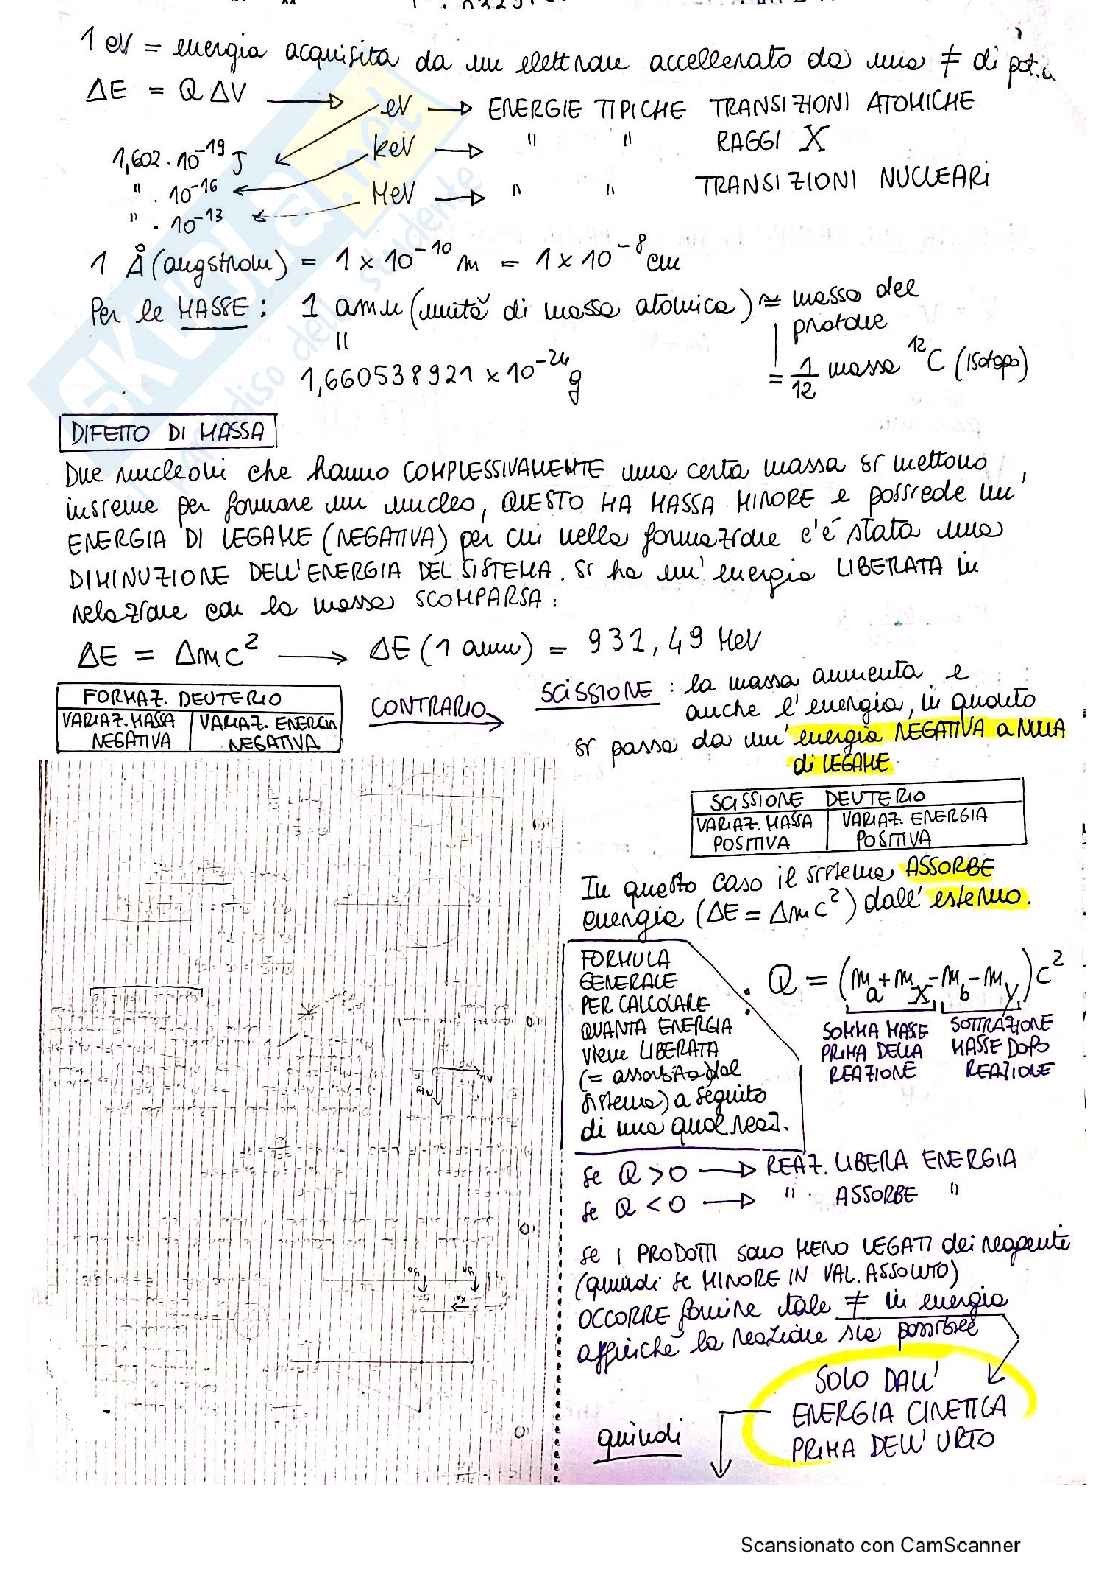 1 eV = energia acquisita da un elettrone accellerato da una ≠ di pot.
ΔE = Q ΔV → eV → ENERGIE TIPICHE TRANSIZIONI ATOMICHE
1,602 · 10⁻¹⁹ J keV → " " RAGGI X
" · 10⁻¹⁶ MeV → " " TRANSIZIONI NUCLEARI
" · 10⁻¹³
1 Å (angstrom) = 1 x 10⁻¹⁰ m = 1 x 10⁻⁸ cm
Per le MASSE : 1 a.m.u (unità di massa atomica) ≈ massa del
protone
"
1,660538921 x 10⁻²⁴ g = 1/12 massa ¹²C (isotopo)
DIFETTO DI MASSA
Due nucleoni che hanno COMPLESSIVAMENTE una certa massa si mettono
insieme per formare un nucleo, QUESTO HA MASSA MINORE e possiede un'
ENERGIA DI LEGAME (NEGATIVA) per cui nella formazione c'è stata una
DIMINUZIONE DELL'ENERGIA DEL SISTEMA. Si ha un'energia LIBERATA in
relazione con la massa SCOMPARSA :
ΔE = Δmc² → ΔE (1 amu) = 931,49 MeV
FORMAZ. DEUTERIO
VARIAZ. MASSA NEGATIVA
VARIAZ. ENERGIA NEGATIVA
CONTRARIO →
SCISSIONE : la massa aumenta e
anche l'energia, in quanto
si passa da un'energia NEGATIVA a NULLA
di LEGAME.
SCISSIONE DEUTERIO
VARIAZ. MASSA POSITIVA
VARIAZ. ENERGIA POSITIVA
In questo caso il sistema ASSORBE
energia (ΔE = Δmc²) dall'esterno.
FORMULA
GENERALE
PER CALCOLARE
QUANTA ENERGIA
viene LIBERATA
(= assorbita dal
sistema) a seguito
di una qual reaz.
: Q = (mₐ + mₓ - m_b - m_y)c²
SOMMA MASSE
PRIMA DELLA
REAZIONE
SOTTRAZIONE
MASSE DOPO
REAZIONE
se Q > 0 → REAZ. LIBERA ENERGIA
se Q < 0 → " ASSORBE "
se i PRODOTTI sono MENO LEGATI dei reagente
(quindi se MINORE IN VAL. ASSOLUTO)
OCCORRE fornire tale ≠ in energia
affinché la reazione sia possibile
SOLO DALL'
ENERGIA CINETICA
PRIMA DELL'URTO
quindi
SKUOLA.net
paradiso dello studente
Scansionato con CamScanner